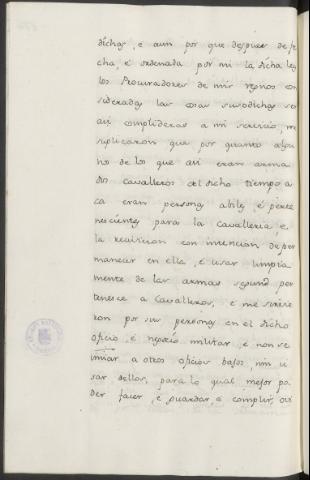 dichas, e aun por que despues de fe
cha, e ordenada por mi la dicha ley
los Procuradores de mis regnos con
sideradas las cosas susodichas ser
asi complideras a mi servicio, me
suplicaron que por quanto algu
nos de los que asi eran arma
dos cavalleros del dicho tiempo a
ca eran personas abiles, e perte
necientes para la cavalleria, e
la recivieron con intencion de per
manecer en ella, e usar limpia
mente de las armas segund per
tenece a Cavalleros, e me sirvie
ron por sus personas en el dicho
oficio, e negocio militar, e non se
inviar a otros oficios bajos, nin u
sar dellos, para lo qual mejor po
der facer, e guardar, e complir, ovi